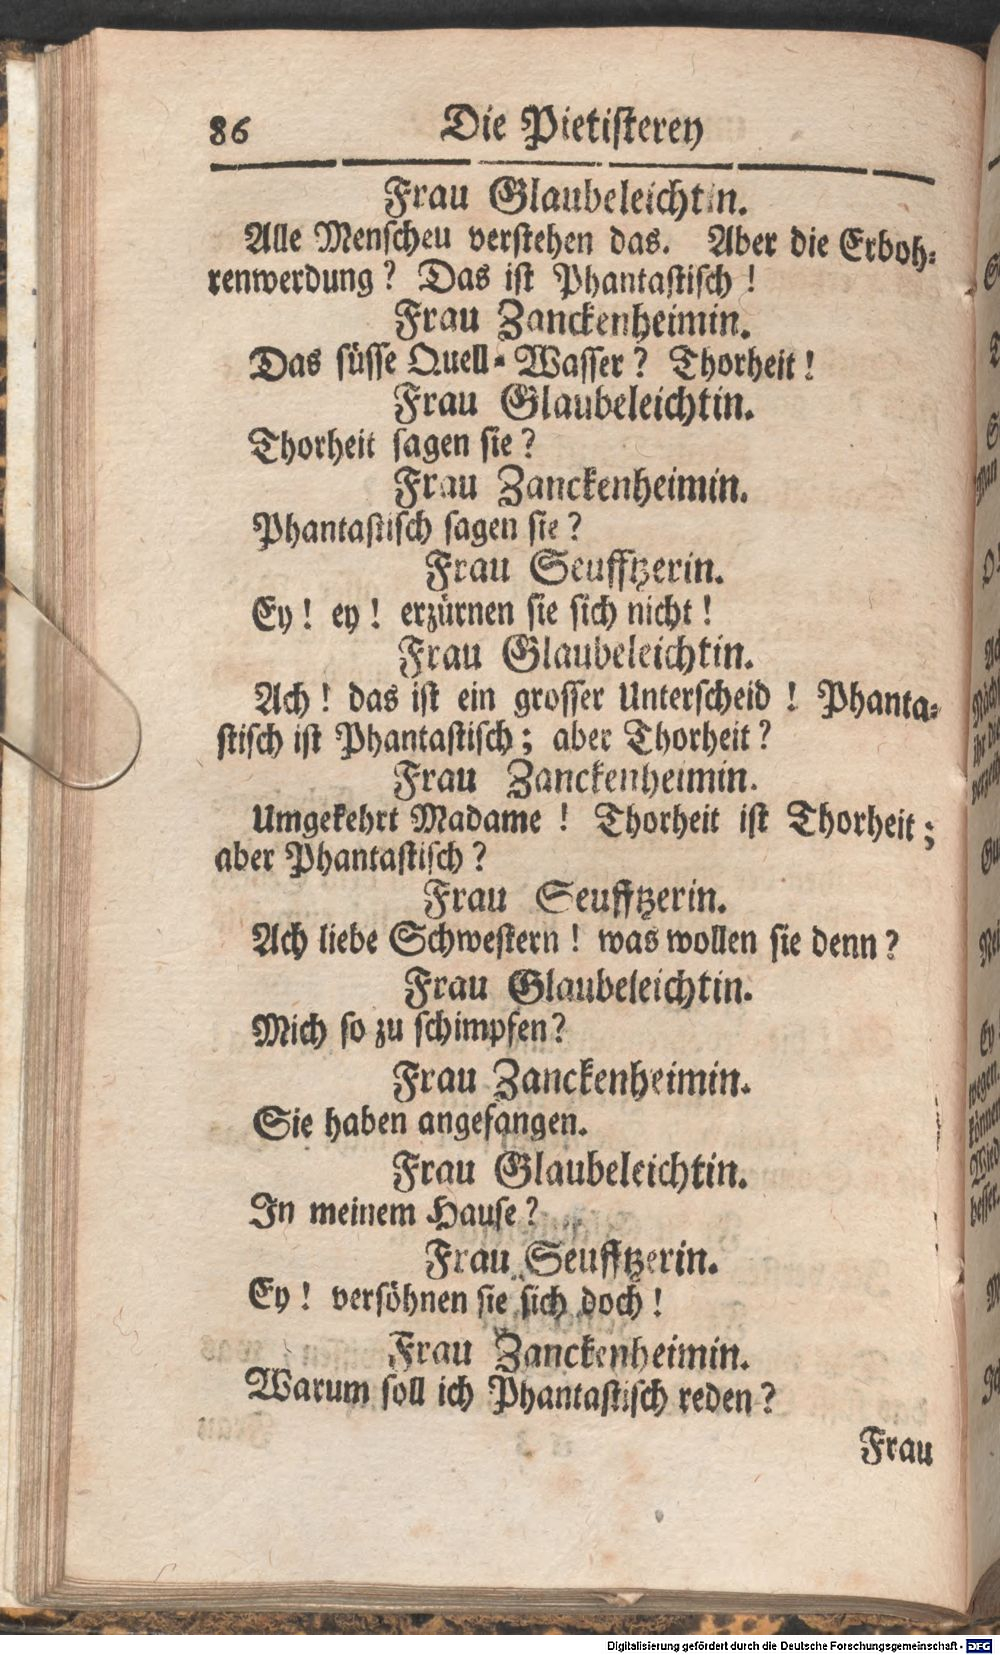 86 Die Pietisterey
Frau Glaubeleichtin.
Alle Menscheu verstehen das. Aber die Erboh-
renwerdung? Das ist Phantastisch!
Frau Zanckenheimin.
Das süsse Quell-Wasser? Thorheit!
Frau Glaubeleichtin.
Thorheit sagen sie?
Frau Zanckenheimin.
Phantastisch sagen sie?
Frau Seufftzerin.
Ey! ey! erzürnen sie sich nicht!
Frau Glaubeleichtin.
Ach! das ist ein grosser Unterscheid! Phanta-
stisch ist Phantastisch; aber Thorheit?
Frau Zanckenheimin.
Umgekehrt Madame! Thorheit ist Thorheit;
aber Phantastisch?
Frau Seufftzerin.
Ach liebe Schwestern! was wollen sie denn?
Frau Glaubeleichtin.
Mich so zu schimpfen?
Frau Zanckenheimin.
Sie haben angefangen.
Frau Glaubeleichtin.
In meinem Hause?
Frau Seufftzerin.
Ey! versöhnen sie sich doch!
Frau Zanckenheimin.
Warum soll ich Phantastisch reden?
Frau
Digitalisierung gefördert durch die Deutsche Forschungsgemeinschaft - DFG